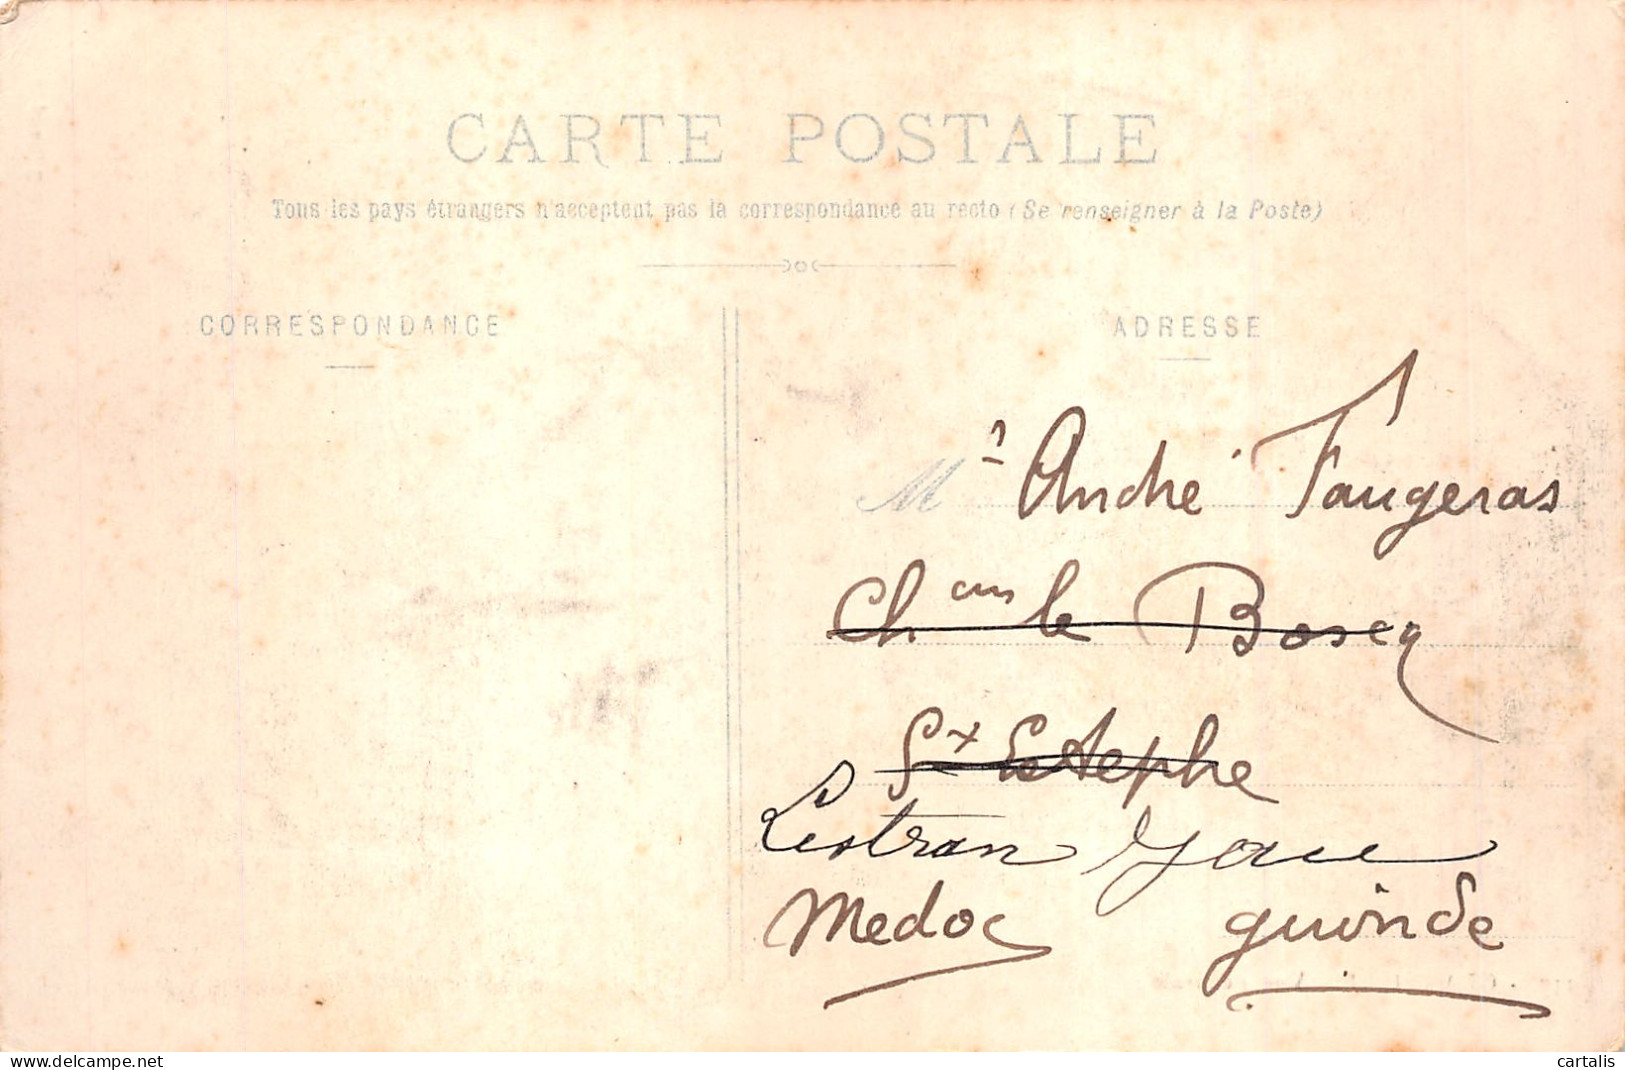 CARTE POSTALE
Tous les pays étrangers n'acceptent pas la correspondance au recto (Se renseigner à la Poste)
CORRESPONDANCE
ADRESSE
M r André Faugeras
Ch au le Boscq
St Estephe
Lestran
Medoc gironde
www.delcampe.net
cartalis